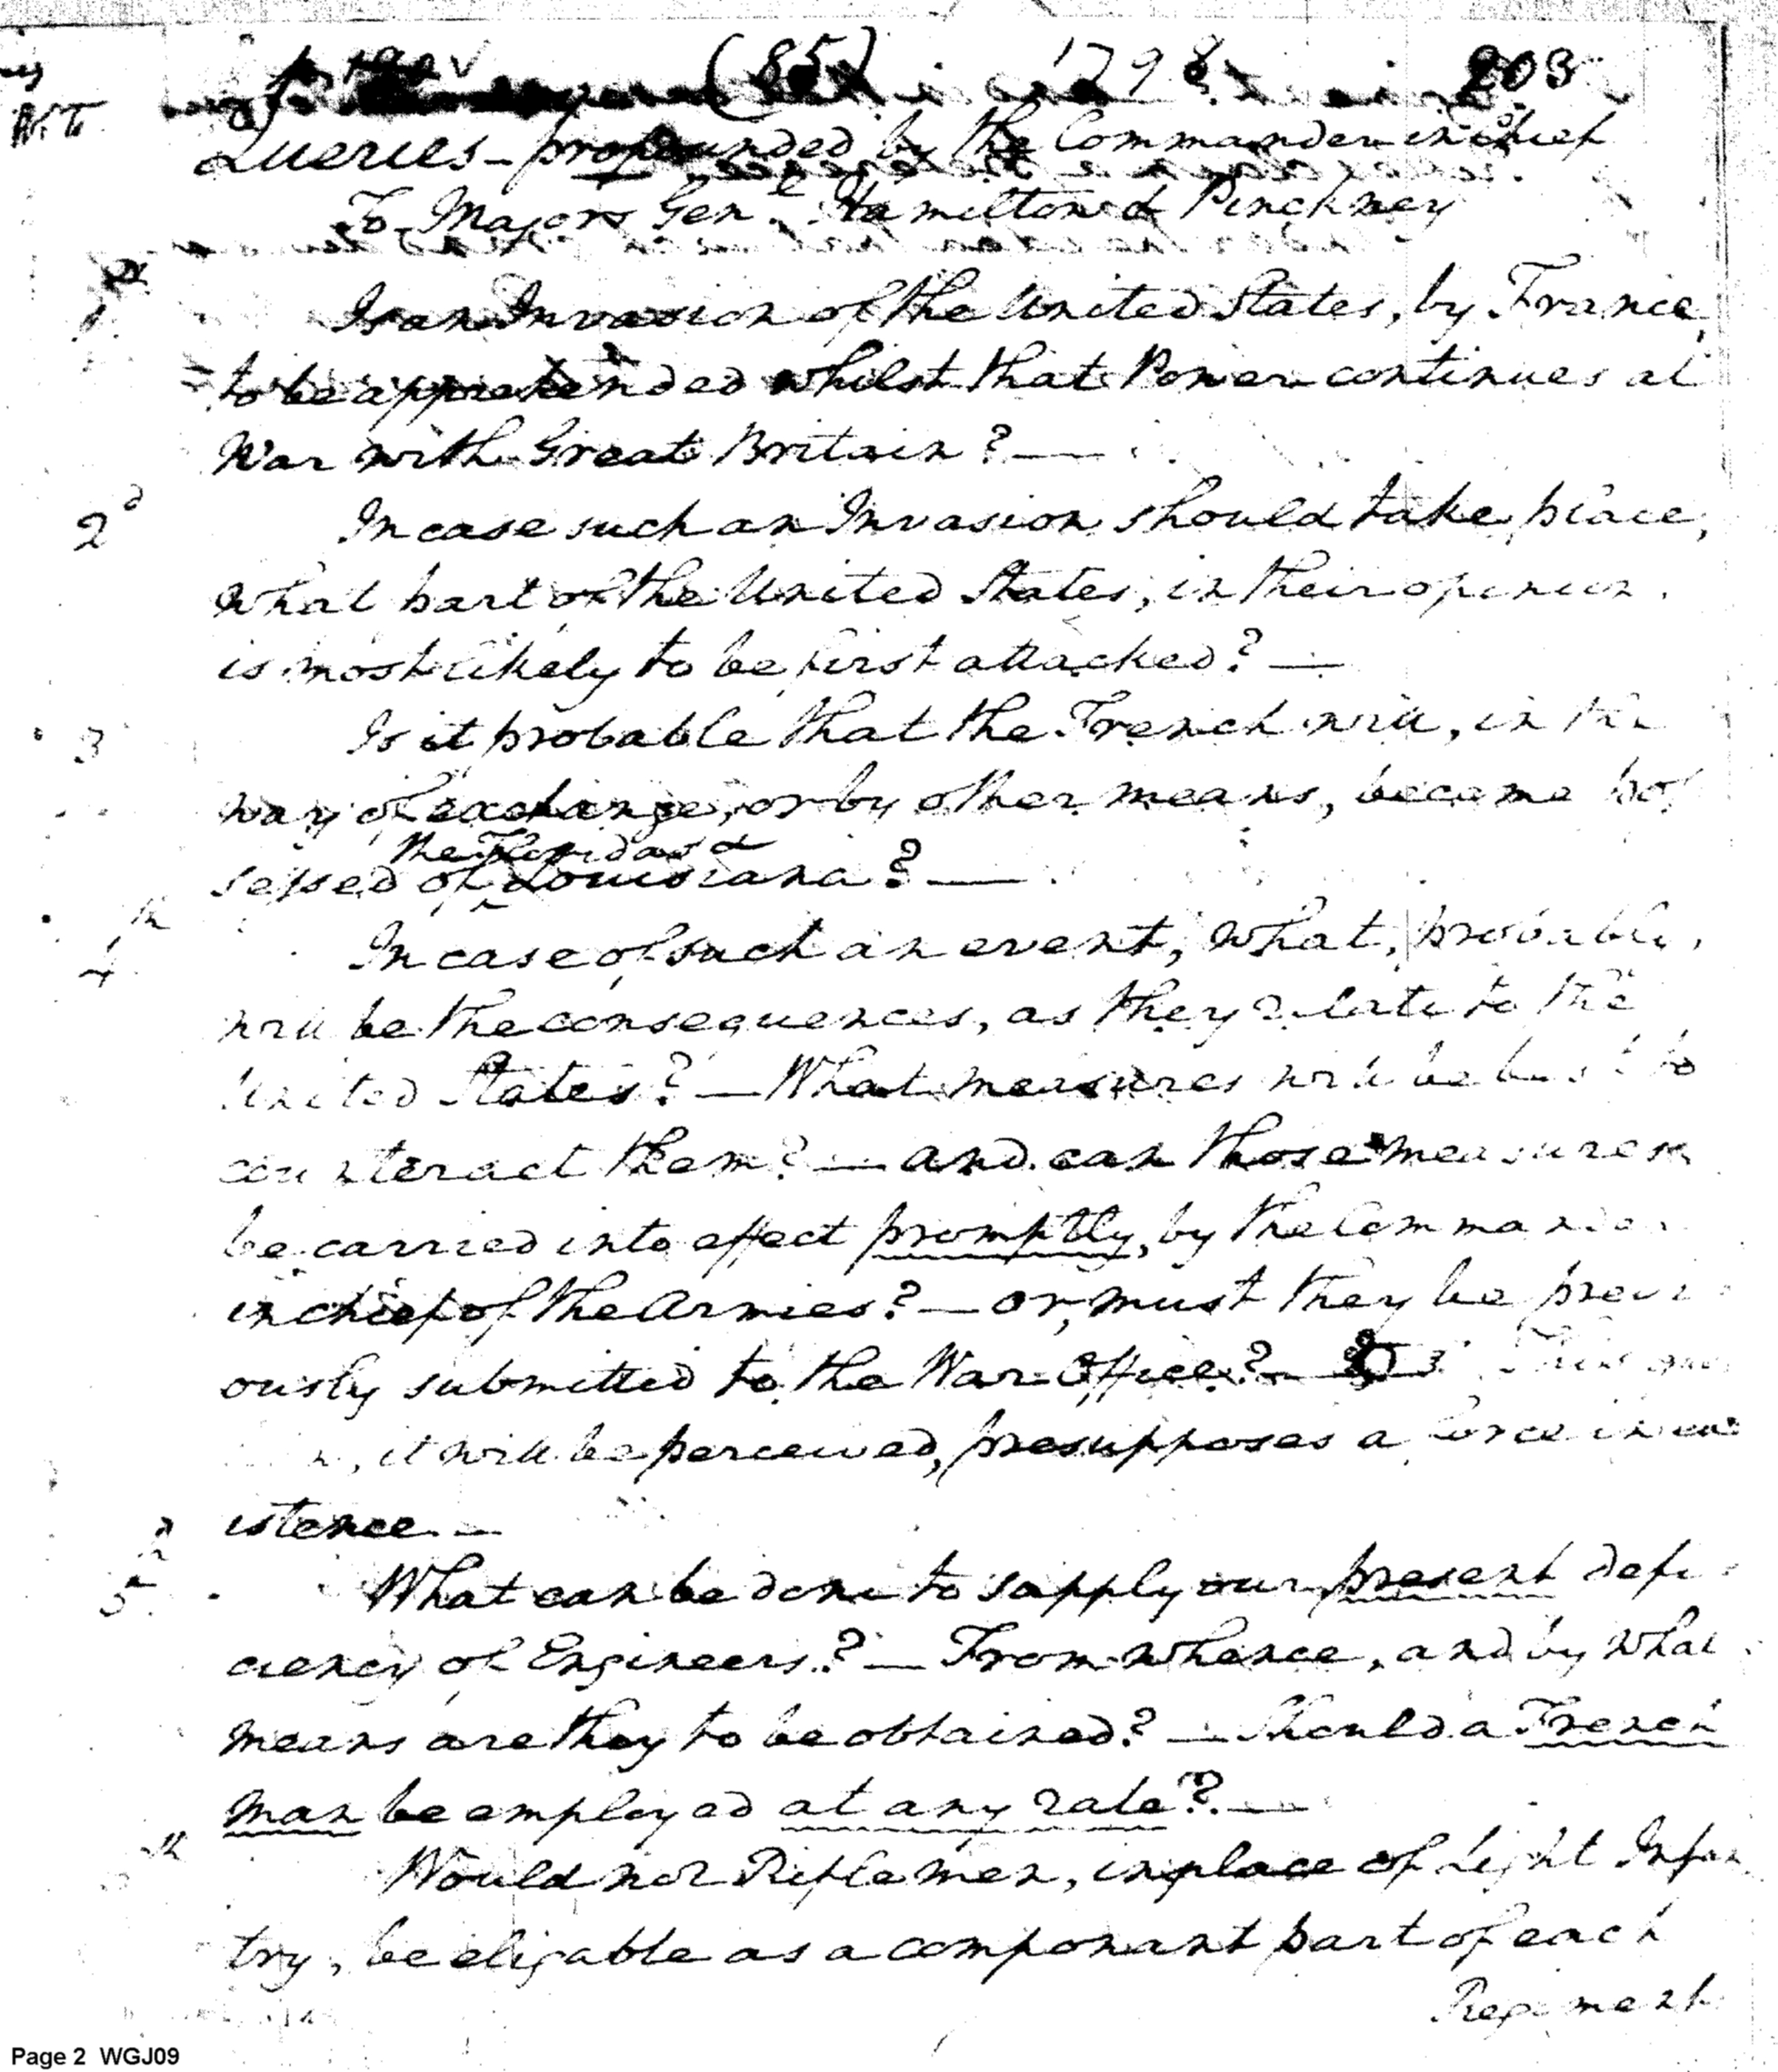 (85) 1798 203
Queries - propounded by the Commander in Chief
To Majors Genl. Hamilton & Pinckney
1. Is an Invasion of the United States, by France,
to be apprehended whilst that Power continues at
War with Great Britain? —
2d In case such an Invasion should take place,
what part of the United States, in their opinion,
is most likely to be first attacked? —
3 Is it probable that the French will, in the
way of exchange, or by other means, become pos
the Floridas &
sessed of ^ Louisiana? —
4th In case of such an event, what, probably,
will be the consequences, as they relate to the
United States? — What measures will be best to
counteract them? — and can those measures
be carried into effect promptly, by the Commander
in chief of the Armies? — or, must they be previ
ously submitted to the War Office? — This ques
n, it will be perceived, presupposes a force in ex
istence. —
5th What can be done to supply our present defi
ciency of Engineers? — From whence, and by what
means are they to be obtained? — Should a French
man be employed at any rate? —
th Would not Riflemen, in place of Light Infan
try, be eligable as a componant part of each
Regiment
Page 2 WGJ09